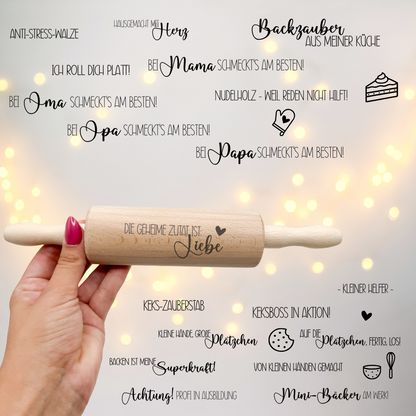 ANTI-STRESS-WALZE
HAUSGEMACHT MIT Herz
Backzauber
AUS MEINER KÜCHE
ICH ROLL DICH PLATT!
BEI Mama SCHMECKT'S AM BESTEN!
BEI Oma SCHMECKT'S AM BESTEN!
NUDELHOLZ - WEIL REDEN NICHT HILFT!
BEI Opa SCHMECKT'S AM BESTEN!
BEI Papa SCHMECKT'S AM BESTEN!
DIE GEHEIME ZUTAT IST:
Liebe
- KLEINER HELFER -
KEKS-ZAUBERSTAB
KEKSBOSS IN AKTION!
KLEINE HÄNDE, GROßE Plätzchen
AUF DIE Plätzchen, FERTIG, LOS!
BACKEN IST MEINE Superkraft!
VON KLEINEN HÄNDEN GEMACHT
Achtung! PROFI IN AUSBILDUNG
Mini-Bäcker AM WERK!